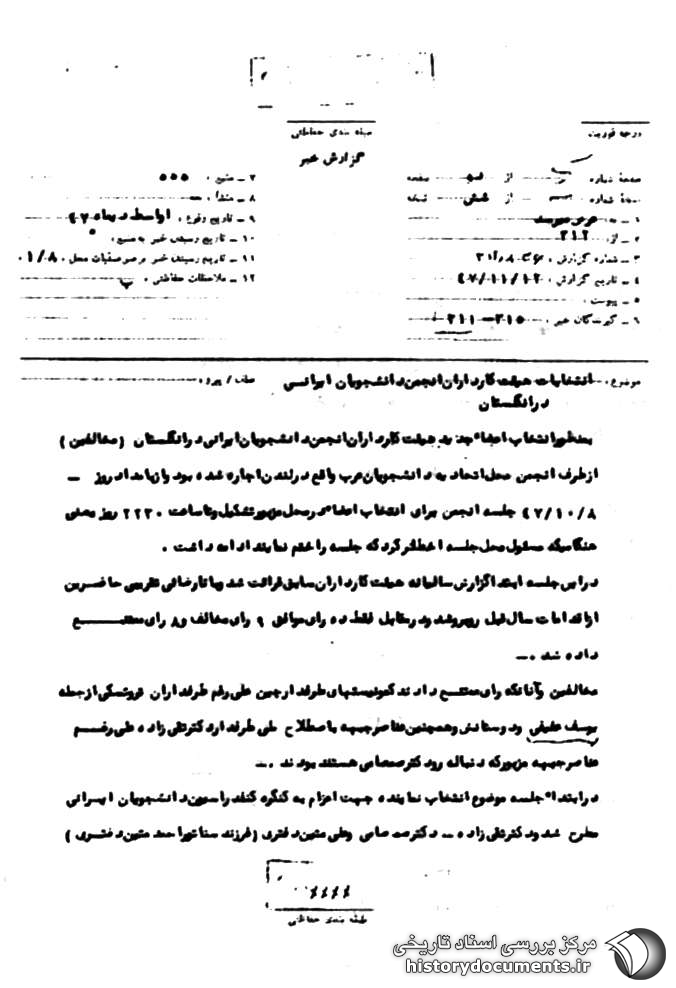 درجه فوریت
طبقه بندی حفاظتی
گزارش خبر
صفحهٔ شماره از صفحه
نسخهٔ شماره از شش نسخه
۱ ـ به
۲ ـ از ۲۱۲
۳ ـ شماره گزارش
۴ ـ تاریخ گزارش ۴۷/۱۱/۱۲
۵ ـ پیوست
۶ ـ گیرندگان خبر ۲۱۵ـ۲۱۱
۷ ـ منبع ۵۵۵
۸ ـ منشأ
۹ ـ تاریخ وقوع اواسط دیماه ۴۷
۱۰ ـ تاریخ رسیدن خبر به منبع
۱۱ ـ تاریخ رسیدن خبر برهبر عملیات محل
۱۲ ـ ملاحظات حفاظتی ب
موضوع انتخابات هیئت کارداران انجمن دانشجویان ایرانی
عطف / پیرو
در انگلستان
بمنظور انتخاب اعضاء جدید هیئت کارداران انجمن دانشجویان ایرانی در انگلستان (مخالفین)
از طرف انجمن محل اتحادیه دانشجویان عرب واقع در لندن اجاره شده بود و از بامداد روز ـ
۴۷/۱۰/۸ جلسه انجمن برای انتخاب اعضاء در محل مزبور تشکیل و تا ساعت ۲۲۳۰ روز یعنی
هنگامیکه مسئول محل جلسه اخطار کرد که جلسه را ختم نمایند ادامه داشت .
در این جلسه ابتدا گزارش سالیانه هیئت کارداران سابق قرائت شد و با نارضائی تقریبی حاضرین
از اقدامات سال قبل روبرو شد و در مقابل فقط ده رای موافق ۹ رای مخالف و ۸ رای ممتنع
داده شد .ـ
مخالفین و آنانکه رای ممتنع دادند کمونیستهای طرفدار چین علی رغم طرفداران تروتسکی از جمله
یوسف و دوستانش و همچنین عناصر جبهه باصطلاح ملی طرفدار دکتر تقی زاده علی رغم
عناصر جبهه مزبور که دنباله رو دکتر صمصامی هستند بودند .ـ
در ابتداء جلسه موضوع انتخاب نماینده جهت اعزام به کنگره کنفدراسیون دانشجویان ایرانی
مطرح شد و دکتر تقی زاده ـ دکتر صمصامی و علی متین دفتری (فرزند سناتور احمد متین دفتری)
طبقه بندی حفاظتی
مرکز بررسی اسناد تاریخی
historydocuments.ir